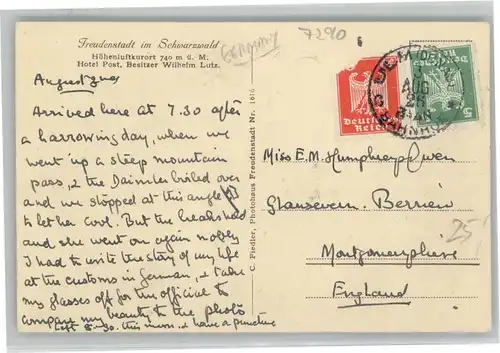 Freudenstadt im Schwarzwald
Höhenluftkurort 740 m ü. M.
Hotel Post, Besitzer Wilhelm Lutz.
Germany
7290
August
Arrived here at 7.30 after
a harrowing day, when we
went up a steep mountain
pass, & the Daimler boiled over
and we stopped at this angle
to let her cool. But the brakes held
and she went on again nobly
I had to write the story of my life
at the customs in German, & take
my glasses off for the official to
compare my beauty to the photo
Left 8-30. this morn. & have a puncture
C. Fiedler, Photohaus Freudenstadt Nr. 1616
Deutsches
Reich
5
AUG
Miss E. M. Humphreys Owen
Glansevern. Berriew
Montgomeryshire
England
25